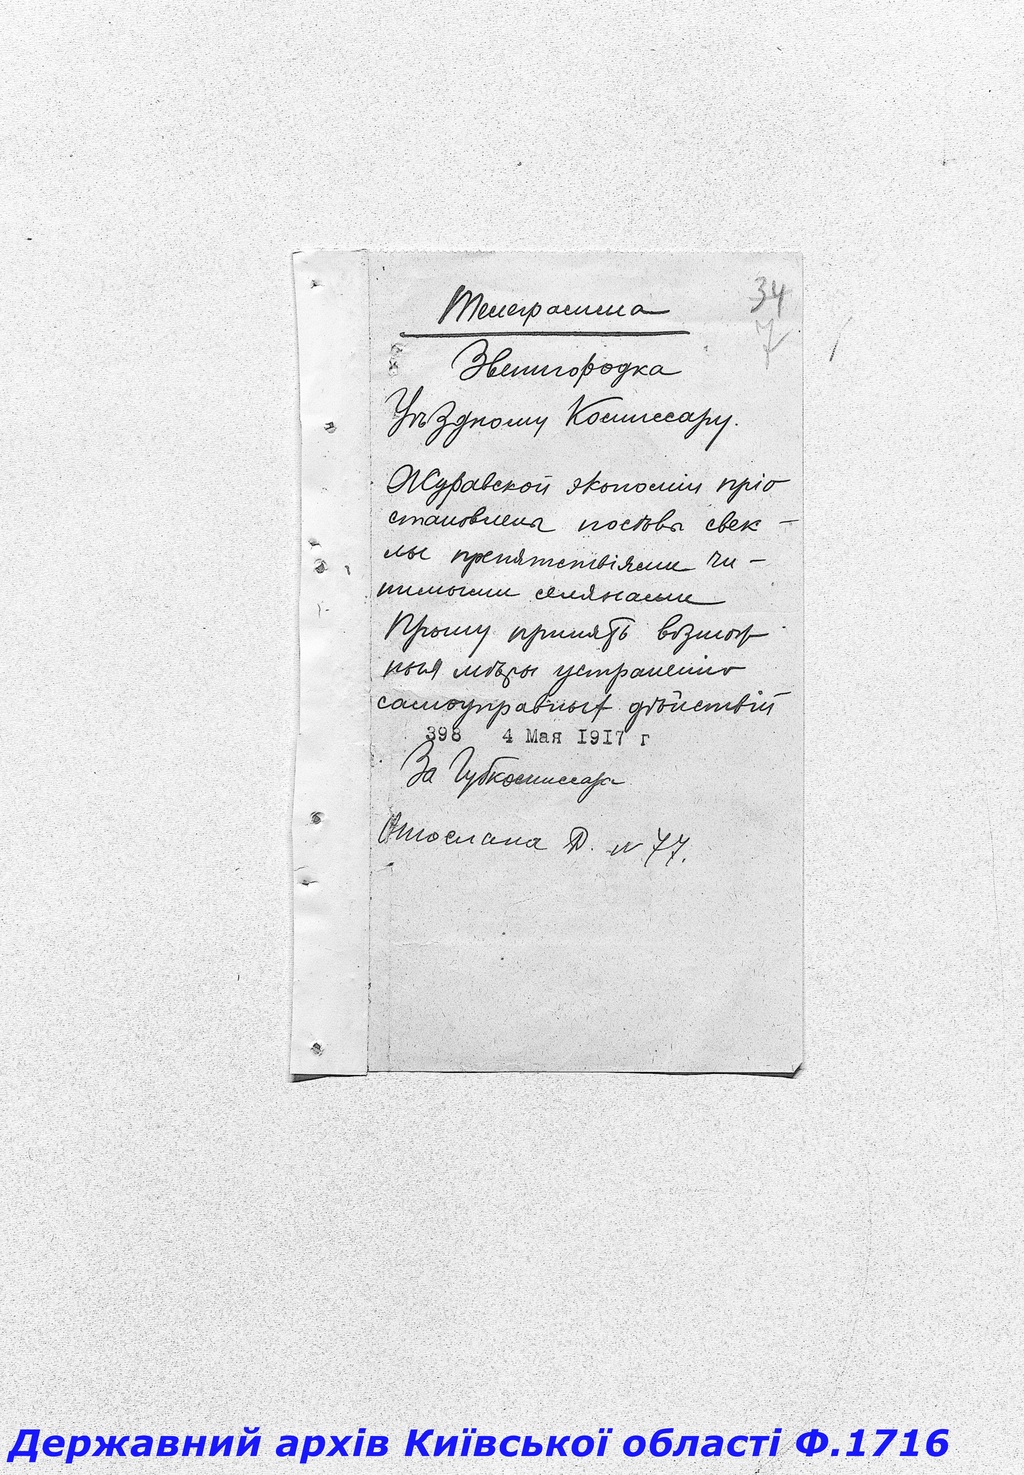 34
7
Телеграмма
Звенигородка
Уѣздному Комиссару.
Журавской экономіи пріо
становлены посѣвы свек-
лы препятствіями чи-
нимыми селянами
Прошу принять возмож
ныя мѣры устраненію
самоуправных дѣйствій
398 4 Мая 1917 г
За Губкомиссара
Отослана Д. N 77.
Державний архів Київської області Ф.1716